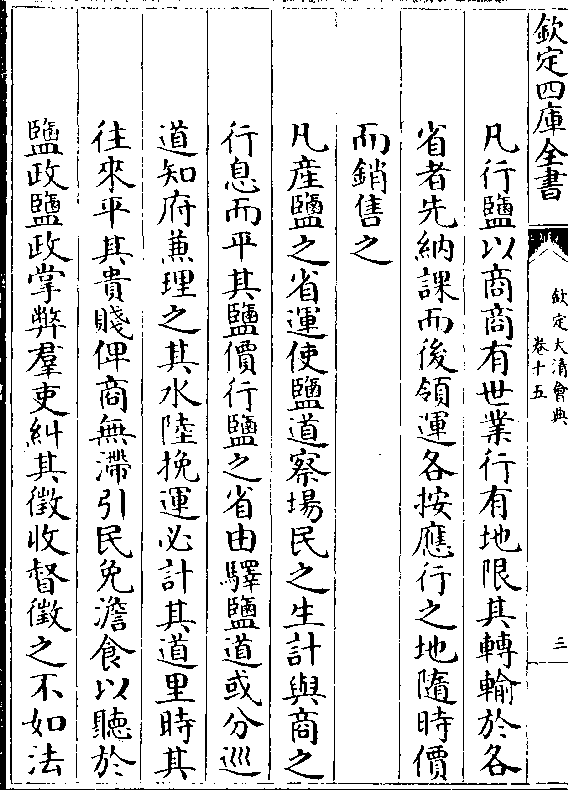 欽定四庫全書
欽定大清會典
卷十五
三
凡行鹽以商商有世業行有地限其轉輸於各
省者先納課而後領運各按應行之地隨時價
而銷售之
凡産鹽之省運使鹽道察場民之生計與商之
行息而平其鹽價行鹽之省由驛鹽道或分巡
道知府兼理之其水陸挽運必計其道里時其
往來平其貴賤俾商無滯引民免澹食以聽於
鹽政鹽政掌弊羣吏糾其徵收督徵之不如法